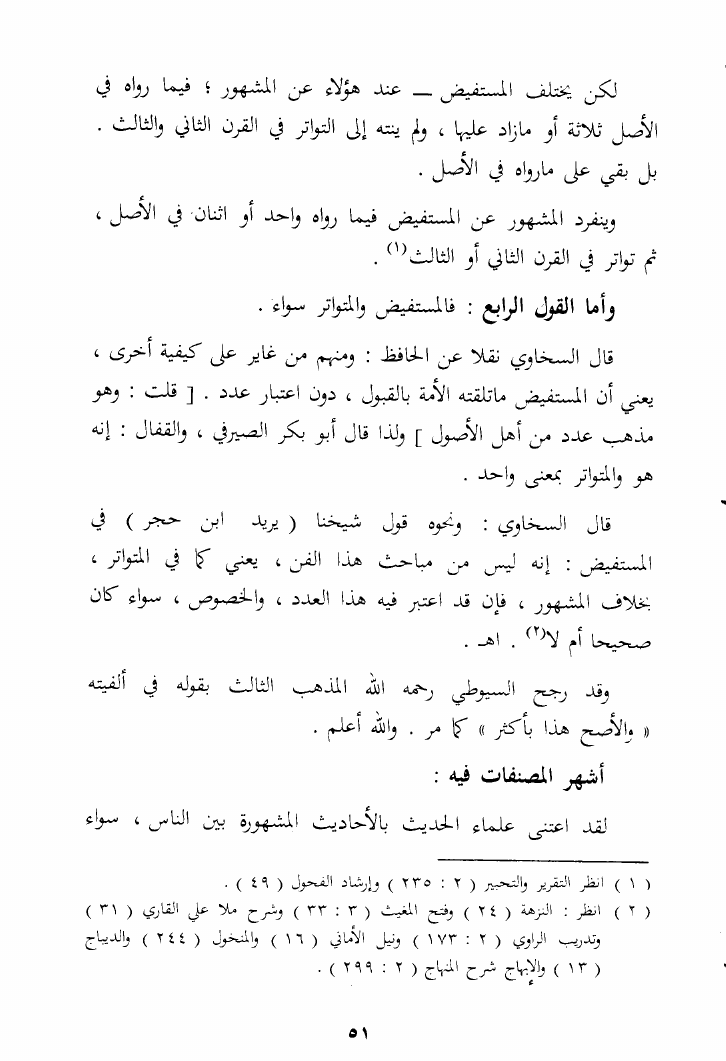 لكن يختلف المستفيض ــ عند هؤلاء عن المشهور ؛ فيما رواه في
الأصل ثلاثة أو مازاد عليها ، ولم ينته إلى التواتر في القرن الثاني والثالث .
بل بقي على مارواه في الأصل .
وينفرد المشهور عن المستفيض فيما رواه واحد أو اثنان في الأصل ،
ثم تواتر في القرن الثاني أو الثالث(١) .
وأما القول الرابع : فالمستفيض والمتواتر سواء .
قال السخاوي نقلا عن الحافظ : ومنهم من غاير على كيفية أخرى ،
يعني أن المستفيض ماتلقته الأمة بالقبول ، دون اعتبار عدد . [ قلت : وهو
مذهب عدد من أهل الأصول ] ولذا قال أبو بكر الصيرفي ، والقفال : إنه
هو والمتواتر بمعنى واحد .
قال السخاوي : ونحوه قول شيخنا ( يريد ابن حجر ) في
المستفيض : إنه ليس من مباحث هذا الفن ، يعني كما في المتواتر ،
بخلاف المشهور ، فإن قد اعتبر فيه هذا العدد ، والخصوص ، سواء كان
صحيحا أم لا(٢) . اهـ .
وقد رجح السيوطي رحمه الله المذهب الثالث بقوله في ألفيته
« والأصح هذا بأكثر » كما مر . والله أعلم .
أشهر المصنفات فيه :
لقد اعتنى علماء الحديث بالأحاديث المشهورة بين الناس ، سواء
( ١ ) انظر التقرير والتحبير ( ٢ : ٢٣٥ ) وإرشاد الفحول ( ٤٩ ) .
( ٢ ) انظر : النزهة ( ٢٤ ) وفتح المغيث ( ٣ : ٣٣ ) وشرح ملا علي القاري ( ٣١ )
وتدريب الراوي ( ٢ : ١٧٣ ) ونيل الأماني ( ١٦ ) والمنخول ( ٢٤٤ ) والديباج
( ١٣ ) والإبهاج شرح المنهاج ( ٢ : ٢٩٩ ) .
٥١